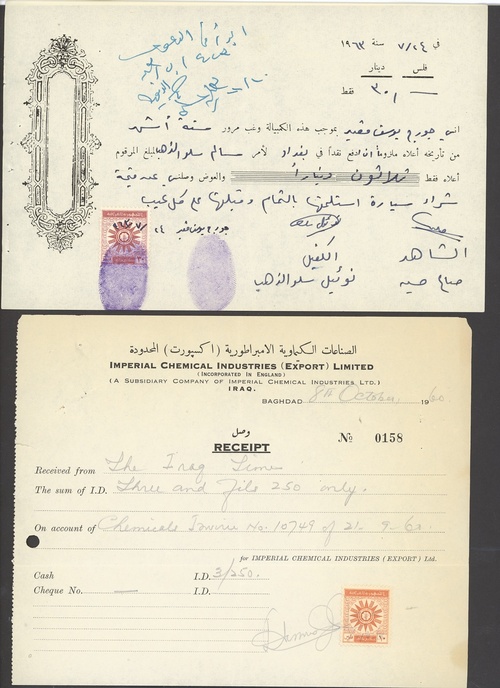 في ٢٤/٧ سنة ١٩٦٣
فلس دينار
فقط /٣٠
اني جورج يوسف مقدير بموجب هذه الكمبيالة وغب مرور ستة أشهر
من تأريخه أعلاه ملزوماً ان ادفع نقداً في بغداد لأمر سالم سلو الذهب المبلغ المرقوم
أعلاه فقط ثلاثون ديناراً والعوض وصلني عيه قيمة
شراء سيارة استلمتها بالتمام وقبلتها مع كل عيب
جورج يوسف
الكفيل
نوئيل سلو الذهب
الشاهد
صباح
الصناعات الكيماوية الامبراطورية (اكسپورت) المحدودة
IMPERIAL CHEMICAL INDUSTRIES (EXPORT) LIMITED
(INCORPORATED IN ENGLAND)
(A SUBSIDIARY COMPANY OF IMPERIAL CHEMICAL INDUSTRIES LTD.)
IRAQ.
BAGHDAD 8th October, 1960
وصل
RECEIPT
№ 0158
Received from The Iraq Times
The sum of I.D. Three and fils 250 only.
On account of Chemicals Invoice No. 10749 of 21-9-60
for IMPERIAL CHEMICAL INDUSTRIES (EXPORT) Ltd.
Cash I.D. 3/250.
Cheque No. — I.D.